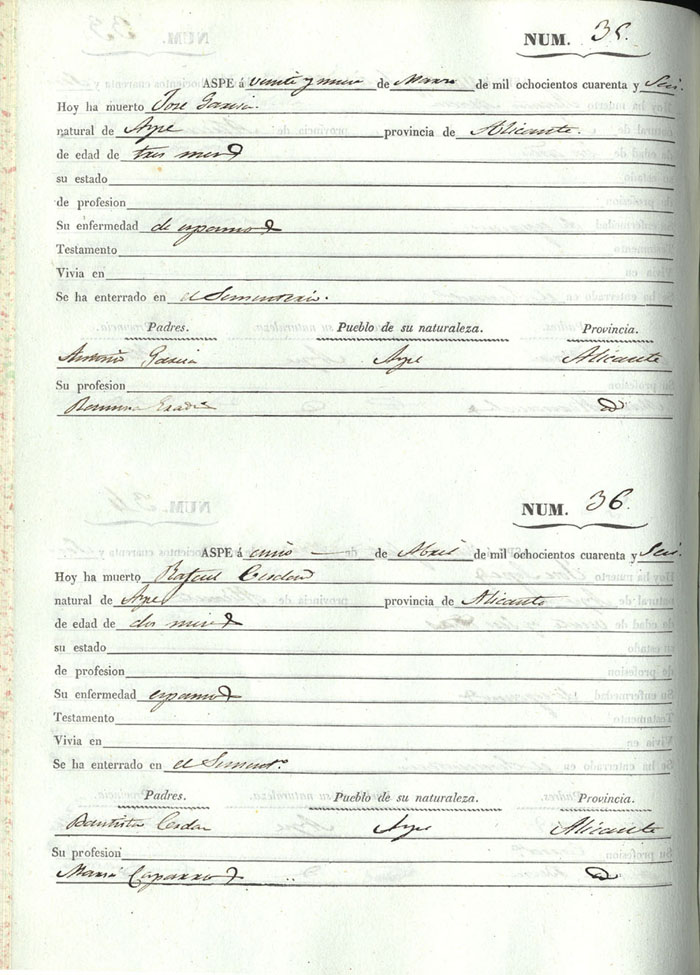 NUM. 35.
ASPE á veinte y nueve de Marzo de mil ochocientos cuarenta y Seis.
Hoy ha muerto José Garcia.
natural de Aspe provincia de Alicante.
de edad de tres meses
su estado
de profesion
Su enfermedad de espasmos
Testamento
Vivia en
Se ha enterrado en el Sementerio.
Padres. Pueblo de su naturaleza. Provincia.
Antonio Garcia Aspe Alicante
Su profesion
NUM. 36
ASPE á de Abril de mil ochocientos cuarenta y Seis.
Hoy ha muerto Rafael Cerdan
natural de Aspe provincia de Alicante
de edad de dos meses
su estado
de profesion
Su enfermedad espasmos
Testamento
Vivia en
Se ha enterrado en el Sementº.
Padres. Pueblo de su naturaleza. Provincia.
Bautista Cerdan Aspe Alicante
Su profesion
Maria Caparros